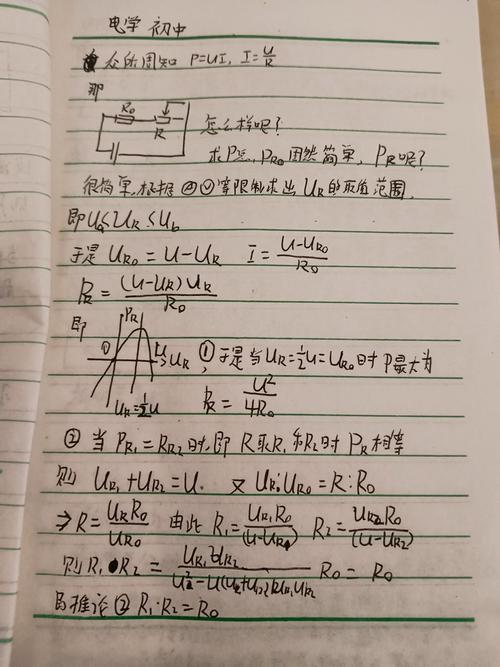 电学 初中
众所周知 P=UI, I=U/R
那
R₀
R
怎么样呢?
求P总, P_R₀ 固然简单, P_R呢?
很简单,根据ⒶⓋ等限制求出 U_R的取值范围.
即Ua≤U_R≤U_b
于是 U_R₀=U-U_R I=(U-U_R₀)/R₀
P_R=(U-U_R)U_R/R₀
即
P_R
U
U_R
U_R=½U
① 于是当U_R=½U=U_R₀时P最大为
P_R=U²/4R₀
② 当 P_R₁=R_R₂时,即 R取R₁和R₂时 P_R相等
则 U_R₁+U_R₂=U. 又 U_R:U_R₀=R:R₀
⇒R=U_R R₀/U_R₀ 由此 R₁=U_R₁R₀/(U-U_R₁) R₂=U_R₂R₀/(U-U_R₂)
则R₁·R₂= R₀= R₀
推论② R₁·R₂=R₀